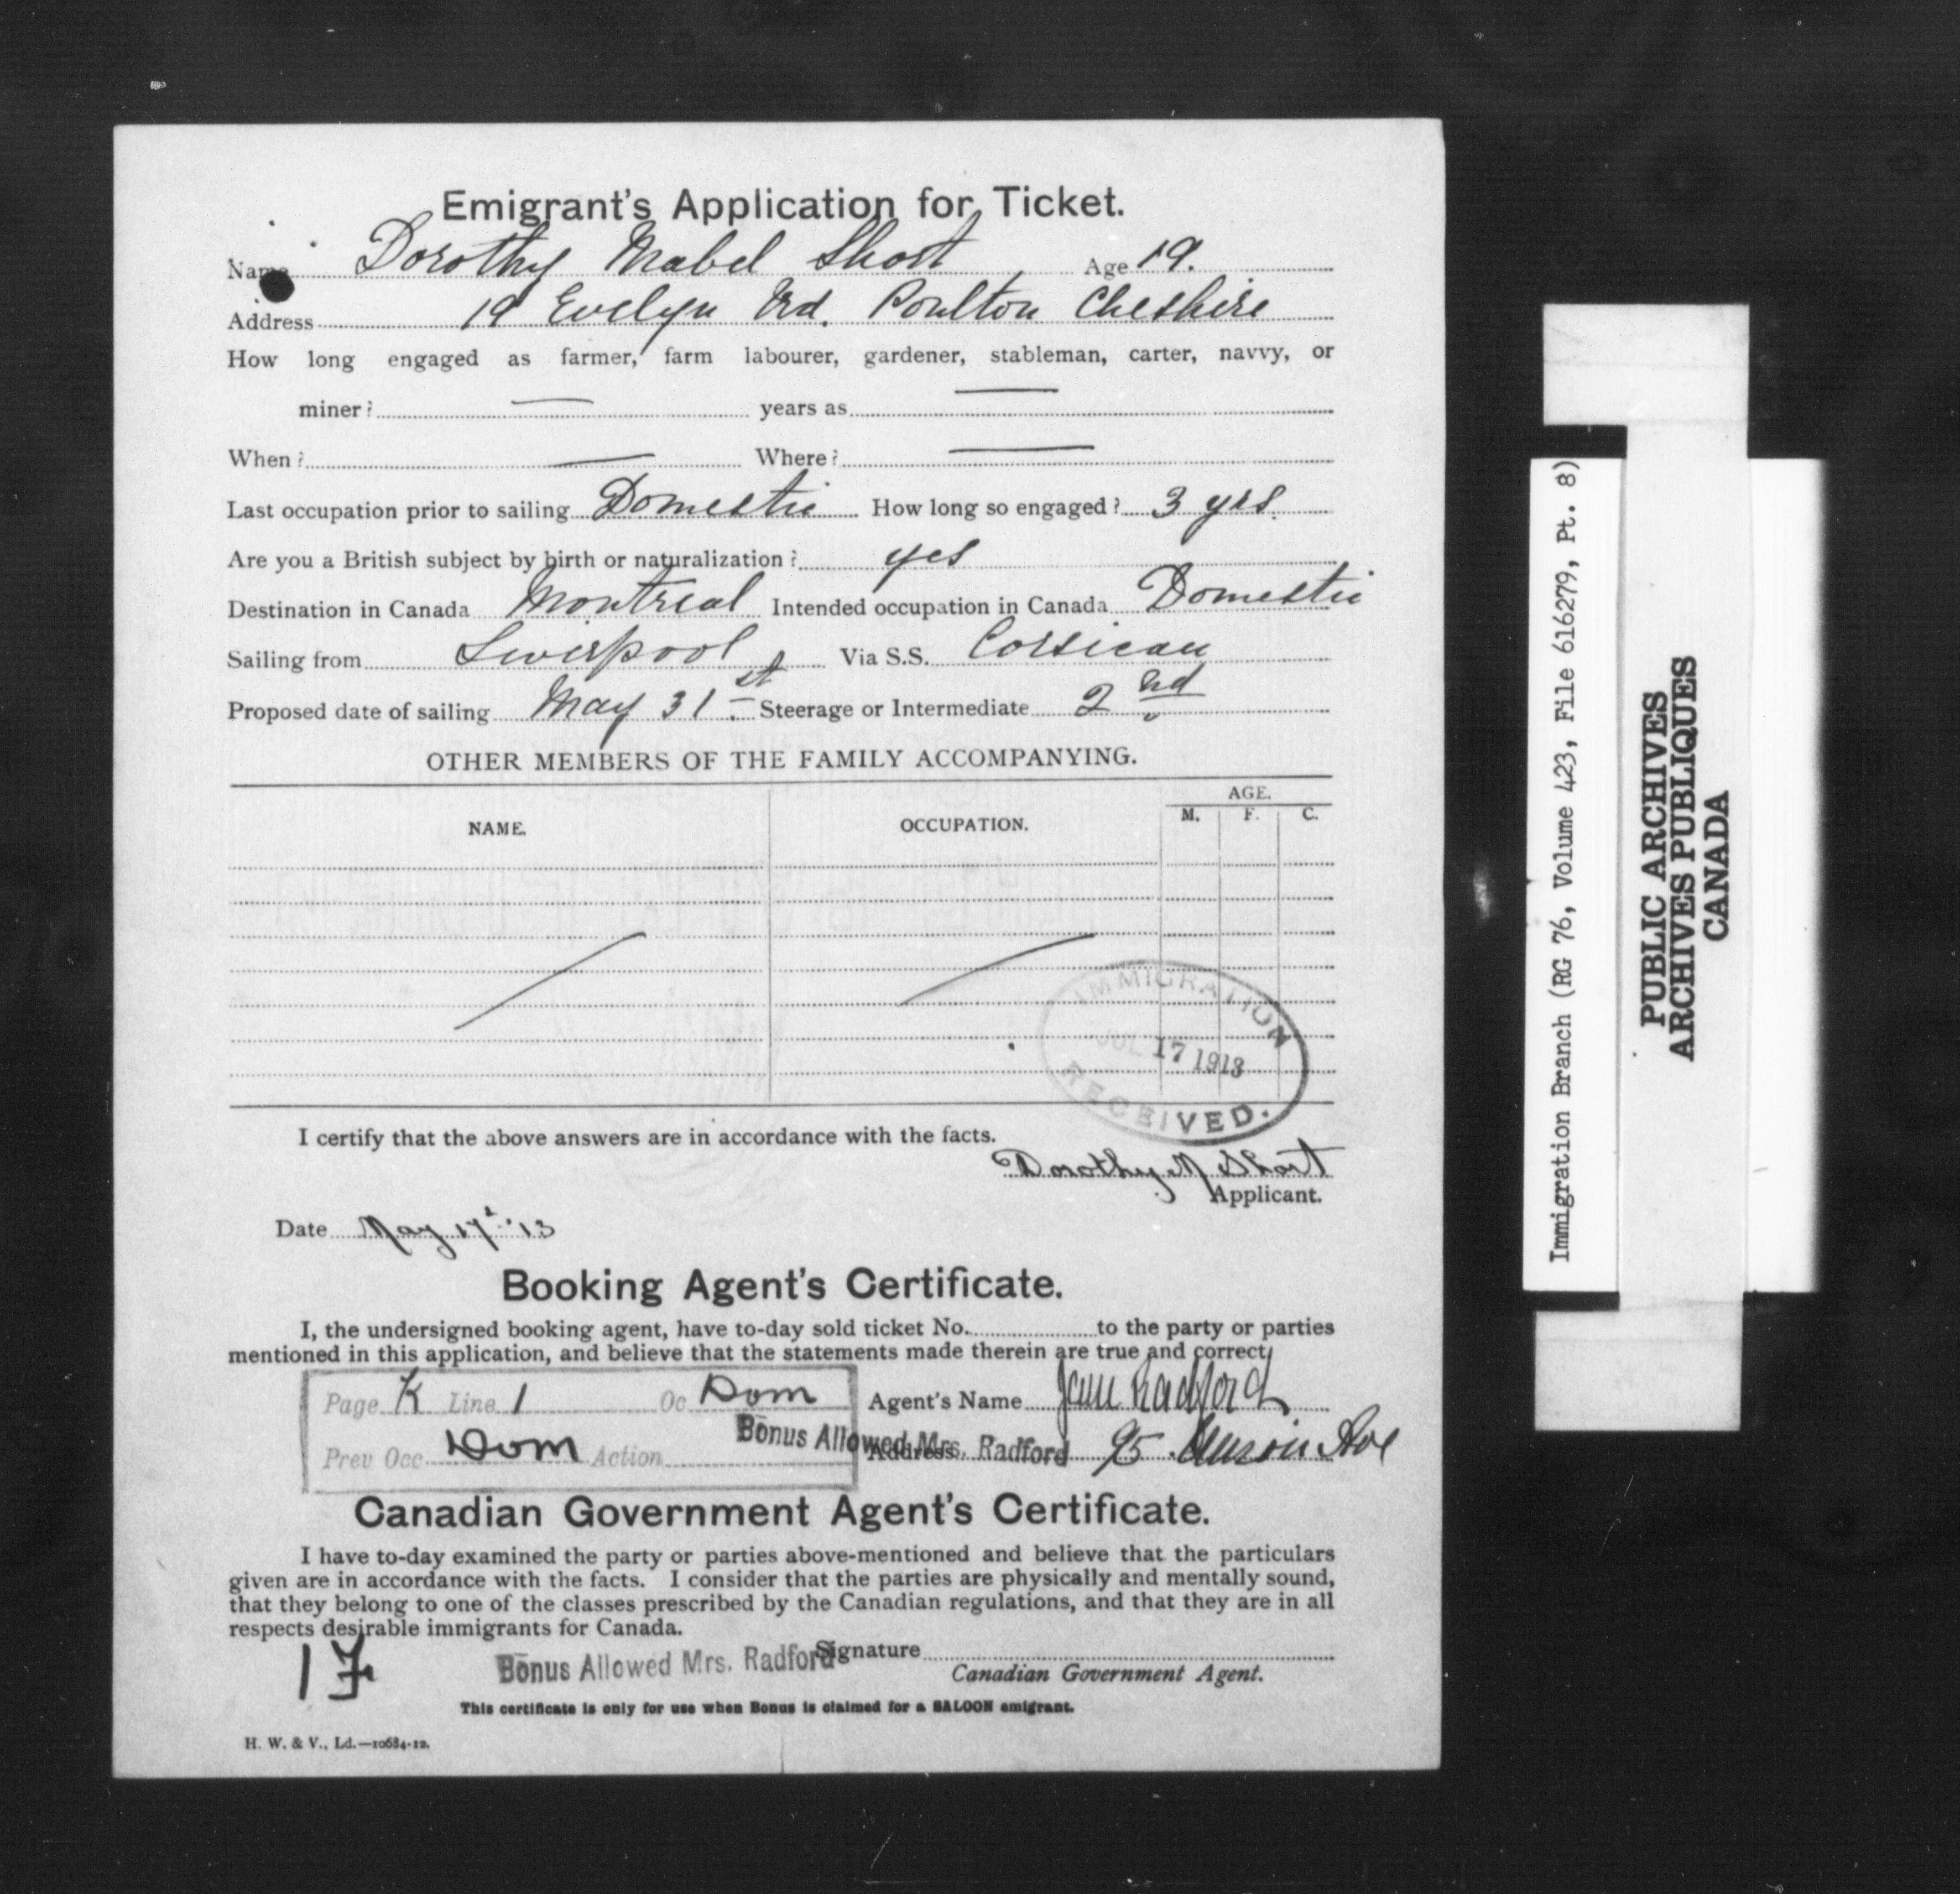 Emigrant's Application for Ticket.
Name Dorothy Mabel Short Age 19.
Address 19 Evelyn Rd. Poulton Cheshire
How long engaged as farmer, farm labourer, gardener, stableman, carter, navvy, or
miner? — years as —
When? — Where? —
Last occupation prior to sailing Domestic How long so engaged? 3 yrs.
Are you a British subject by birth or naturalization? yes
Destination in Canada Montreal Intended occupation in Canada Domestic
Sailing from Liverpool Via S.S. Corsican
Proposed date of sailing May 31st Steerage or Intermediate 2nd
OTHER MEMBERS OF THE FAMILY ACCOMPANYING.
NAME. OCCUPATION. AGE.
M. F. C.
IMMIGRATION
JUL 17 1913
RECEIVED.
I certify that the above answers are in accordance with the facts.
Dorothy M Short
Applicant.
Date May 17th '13
Booking Agent's Certificate.
I, the undersigned booking agent, have to-day sold ticket No. to the party or parties
mentioned in this application, and believe that the statements made therein are true and correct.
Page K Line 1 Oc Dom
Agent's Name Jane Radford
Bonus Allowed Mrs. Radford
Prev Occ Dom Action
Address 95 Ave
Canadian Government Agent's Certificate.
I have to-day examined the party or parties above-mentioned and believe that the particulars
given are in accordance with the facts. I consider that the parties are physically and mentally sound,
that they belong to one of the classes prescribed by the Canadian regulations, and that they are in all
respects desirable immigrants for Canada.
Signature
1 F
Bonus Allowed Mrs. Radford
Canadian Government Agent.
This certificate is only for use when Bonus is claimed for a SALOON emigrant.
H. W. & V., Ld.—10684-12.
Immigration Branch (RG 76, Volume 423, File 616279, Pt. 8)
PUBLIC ARCHIVES
ARCHIVES PUBLIQUES
CANADA